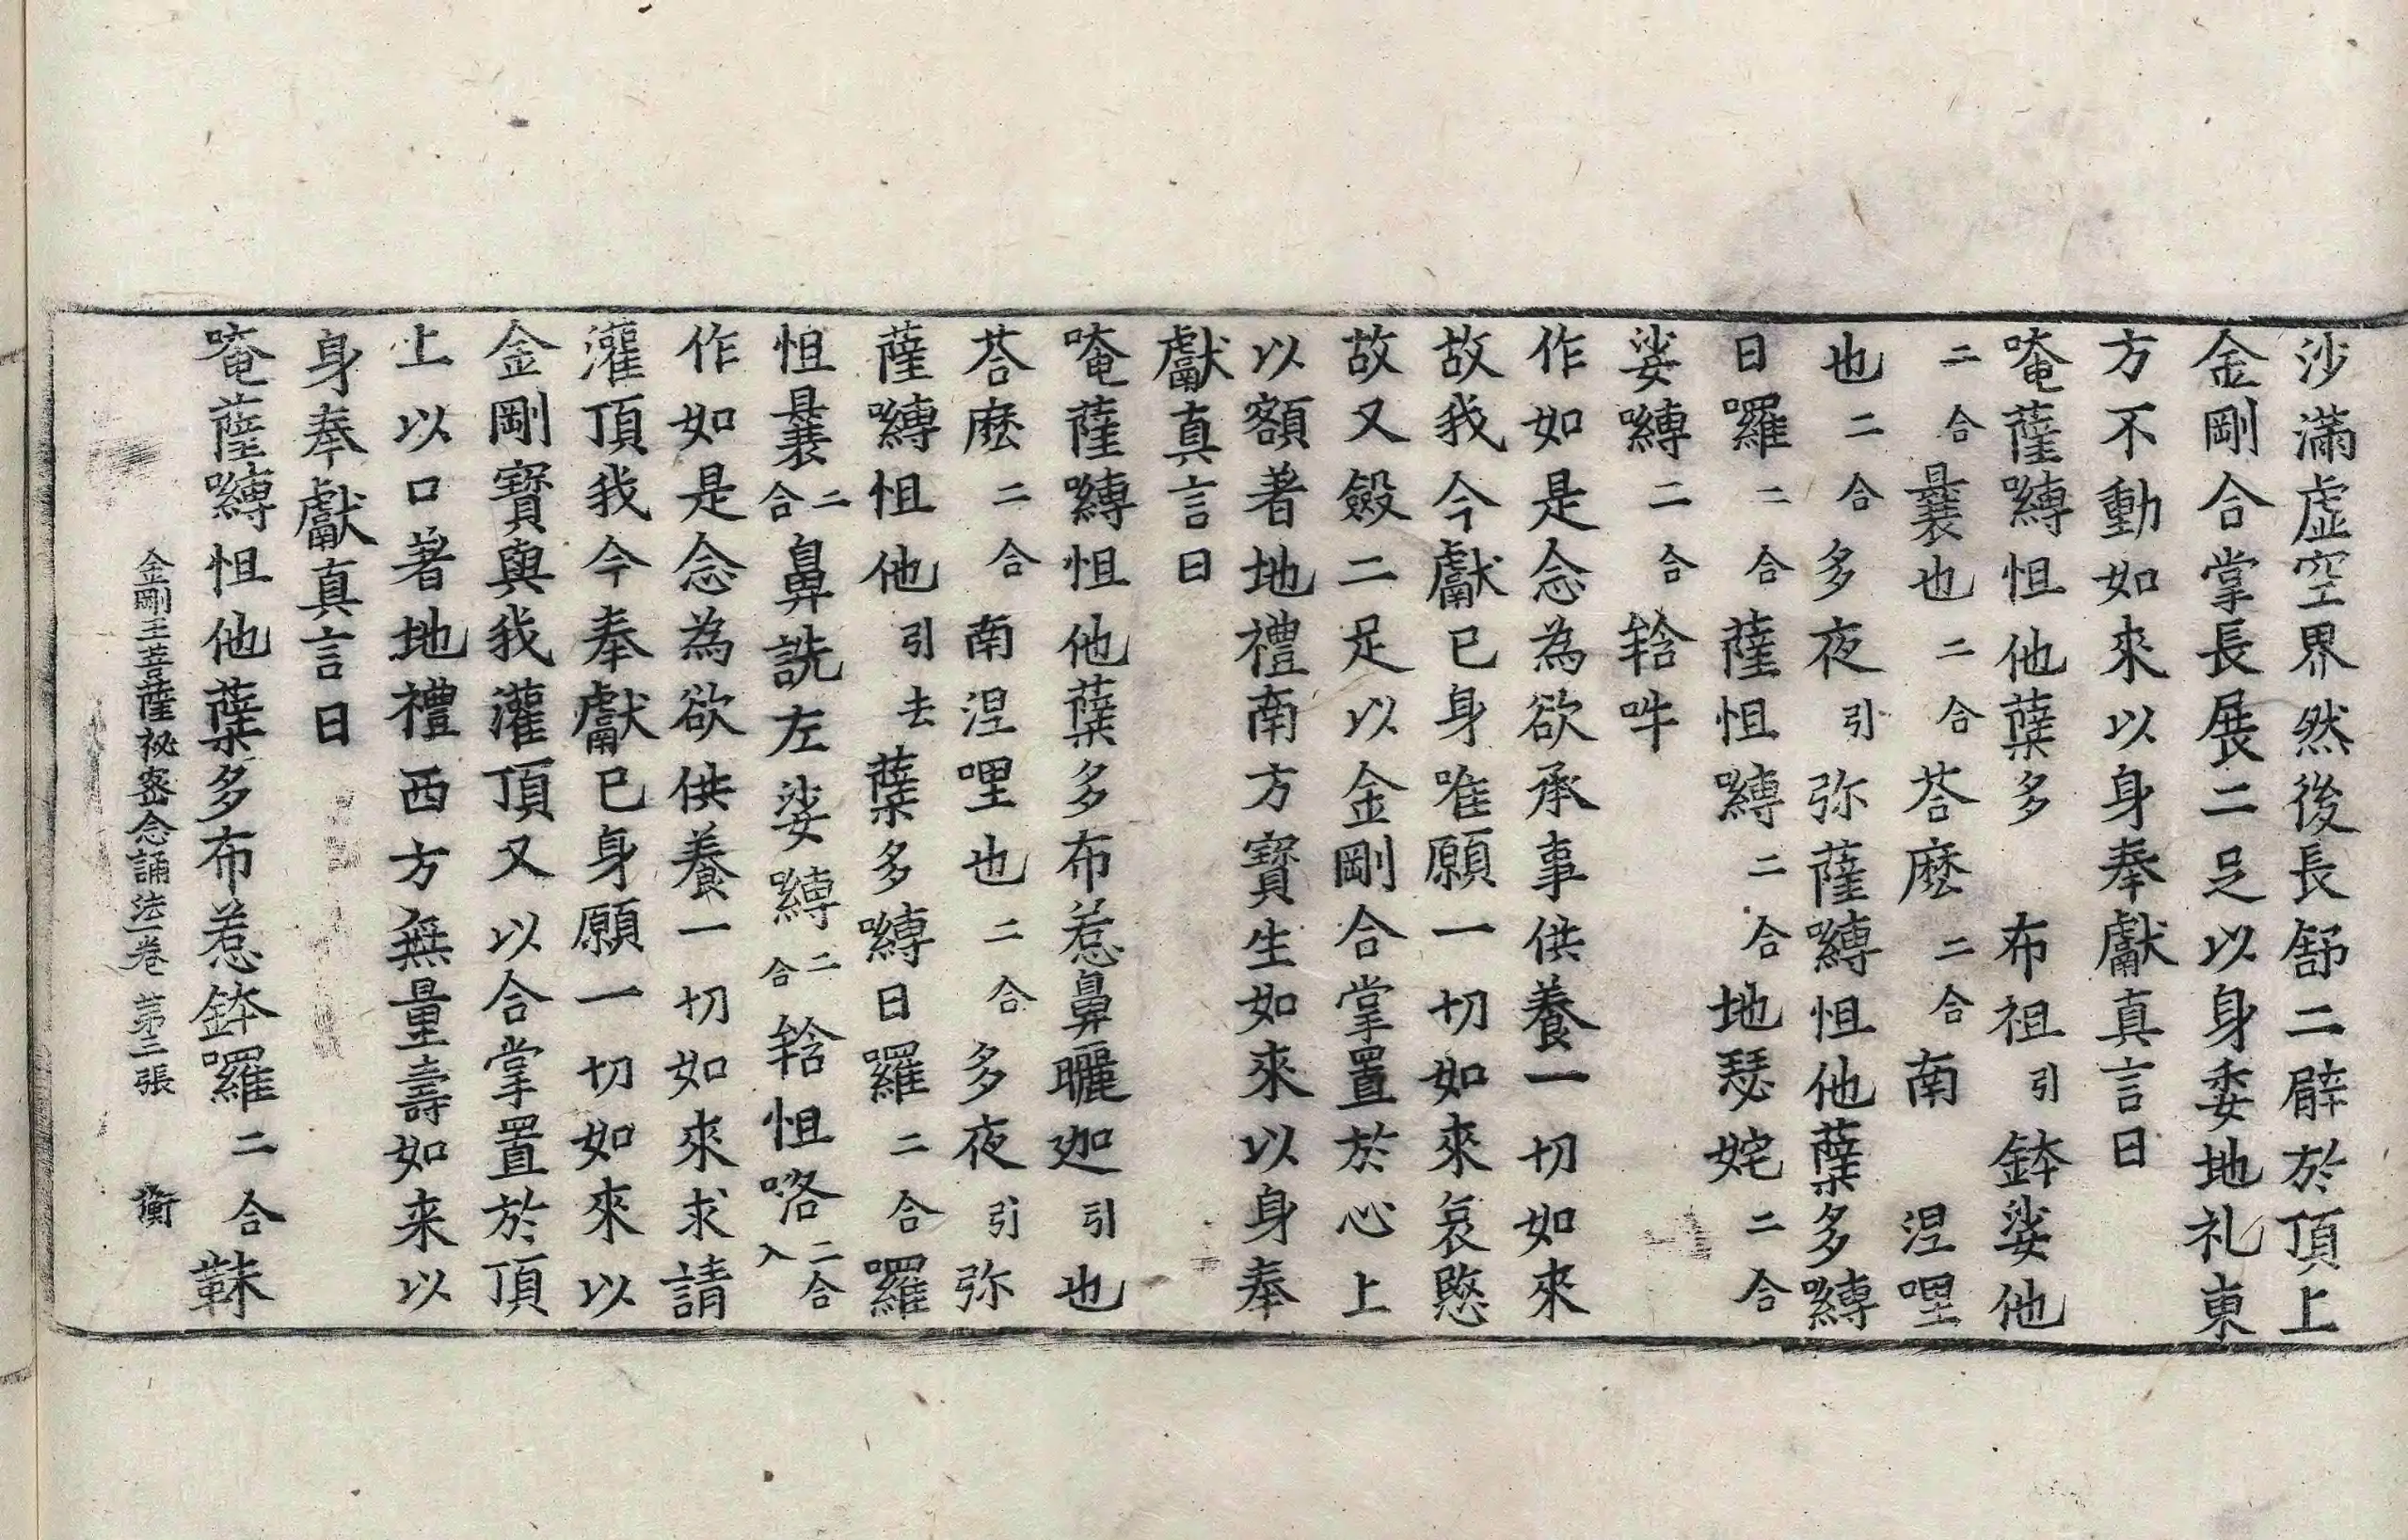 沙滿虛空界然後長舒二臂於頂上
金剛合掌長展二足以身委地礼東
方不動如來以身奉獻真言曰
唵薩嚩怛他蘖多 布祖引鉢娑他
二合曩也二合荅麽二合南 涅哩
也二合多夜引弥薩嚩怛他蘖多嚩
日囉二合薩怛嚩二合地瑟姹二合
娑嚩二合𤚥吽
作如是念為欲承事供養一切如來
故我今獻已身唯願一切如來哀愍
故又斂二足以金剛合掌置於心上
以額著地禮南方寶生如來以身奉
獻真言曰
唵薩嚩怛他蘖多布惹鼻曬迦引也
荅麽二合南涅哩也二合多夜引弥
薩嚩怛他引去蘖多嚩日囉二合羅
怛曩二合鼻詵左娑嚩二合𤚥怛咯二合入
作如是念為欲供養一切如來求請
灌頂我今奉獻已身願一切如來以
金剛寶與我灌頂又以合掌置於頂
上以口著地禮西方無量壽如来以
身奉獻真言曰
唵薩嚩怛他蘖多布惹鉢囉二合靺
金剛王菩薩祕密念誦法一卷 第三張 衡